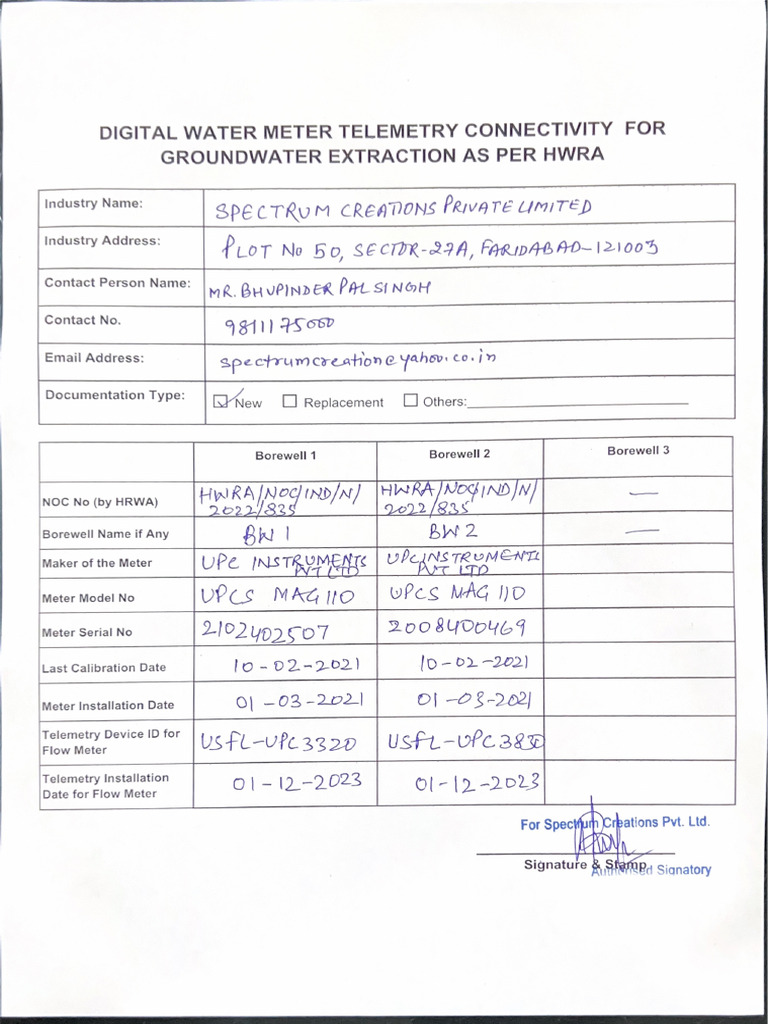 DIGITAL WATER METER TELEMETRY CONNECTIVITY FOR
GROUNDWATER EXTRACTION AS PER HWRA
Industry Name: SPECTRUM CREATIONS PRIVATE LIMITED
Industry Address: PLOT No 50, SECTOR-27A, FARIDABAD-121003
Contact Person Name: MR. BHUPINDER PAL SINGH
Contact No. 9811175000
Email Address: spectrumcreation@yahoo.co.in
Documentation Type: ☑ New ☐ Replacement ☐ Others:
Borewell 1 Borewell 2 Borewell 3
NOC No (by HRWA) HWRA/NOC/IND/N/ HWRA/NOC/IND/N/ —
2022/835 2022/835
Borewell Name if Any BW 1 BW 2 —
Maker of the Meter UPC INSTRUMENTS UPC INSTRUMENTS
PVT LTD PVT LTD
Meter Model No UPCS MAG 110 UPCS MAG 110
Meter Serial No 2102402507 2008400469
Last Calibration Date 10-02-2021 10-02-2021
Meter Installation Date 01-03-2021 01-03-2021
Telemetry Device ID for
Flow Meter USFL-UPC3320 USFL-UPC3830
Telemetry Installation
Date for Flow Meter 01-12-2023 01-12-2023
For Spectrum Creations Pvt. Ltd.
Signature & Stamp
Authorised Signatory